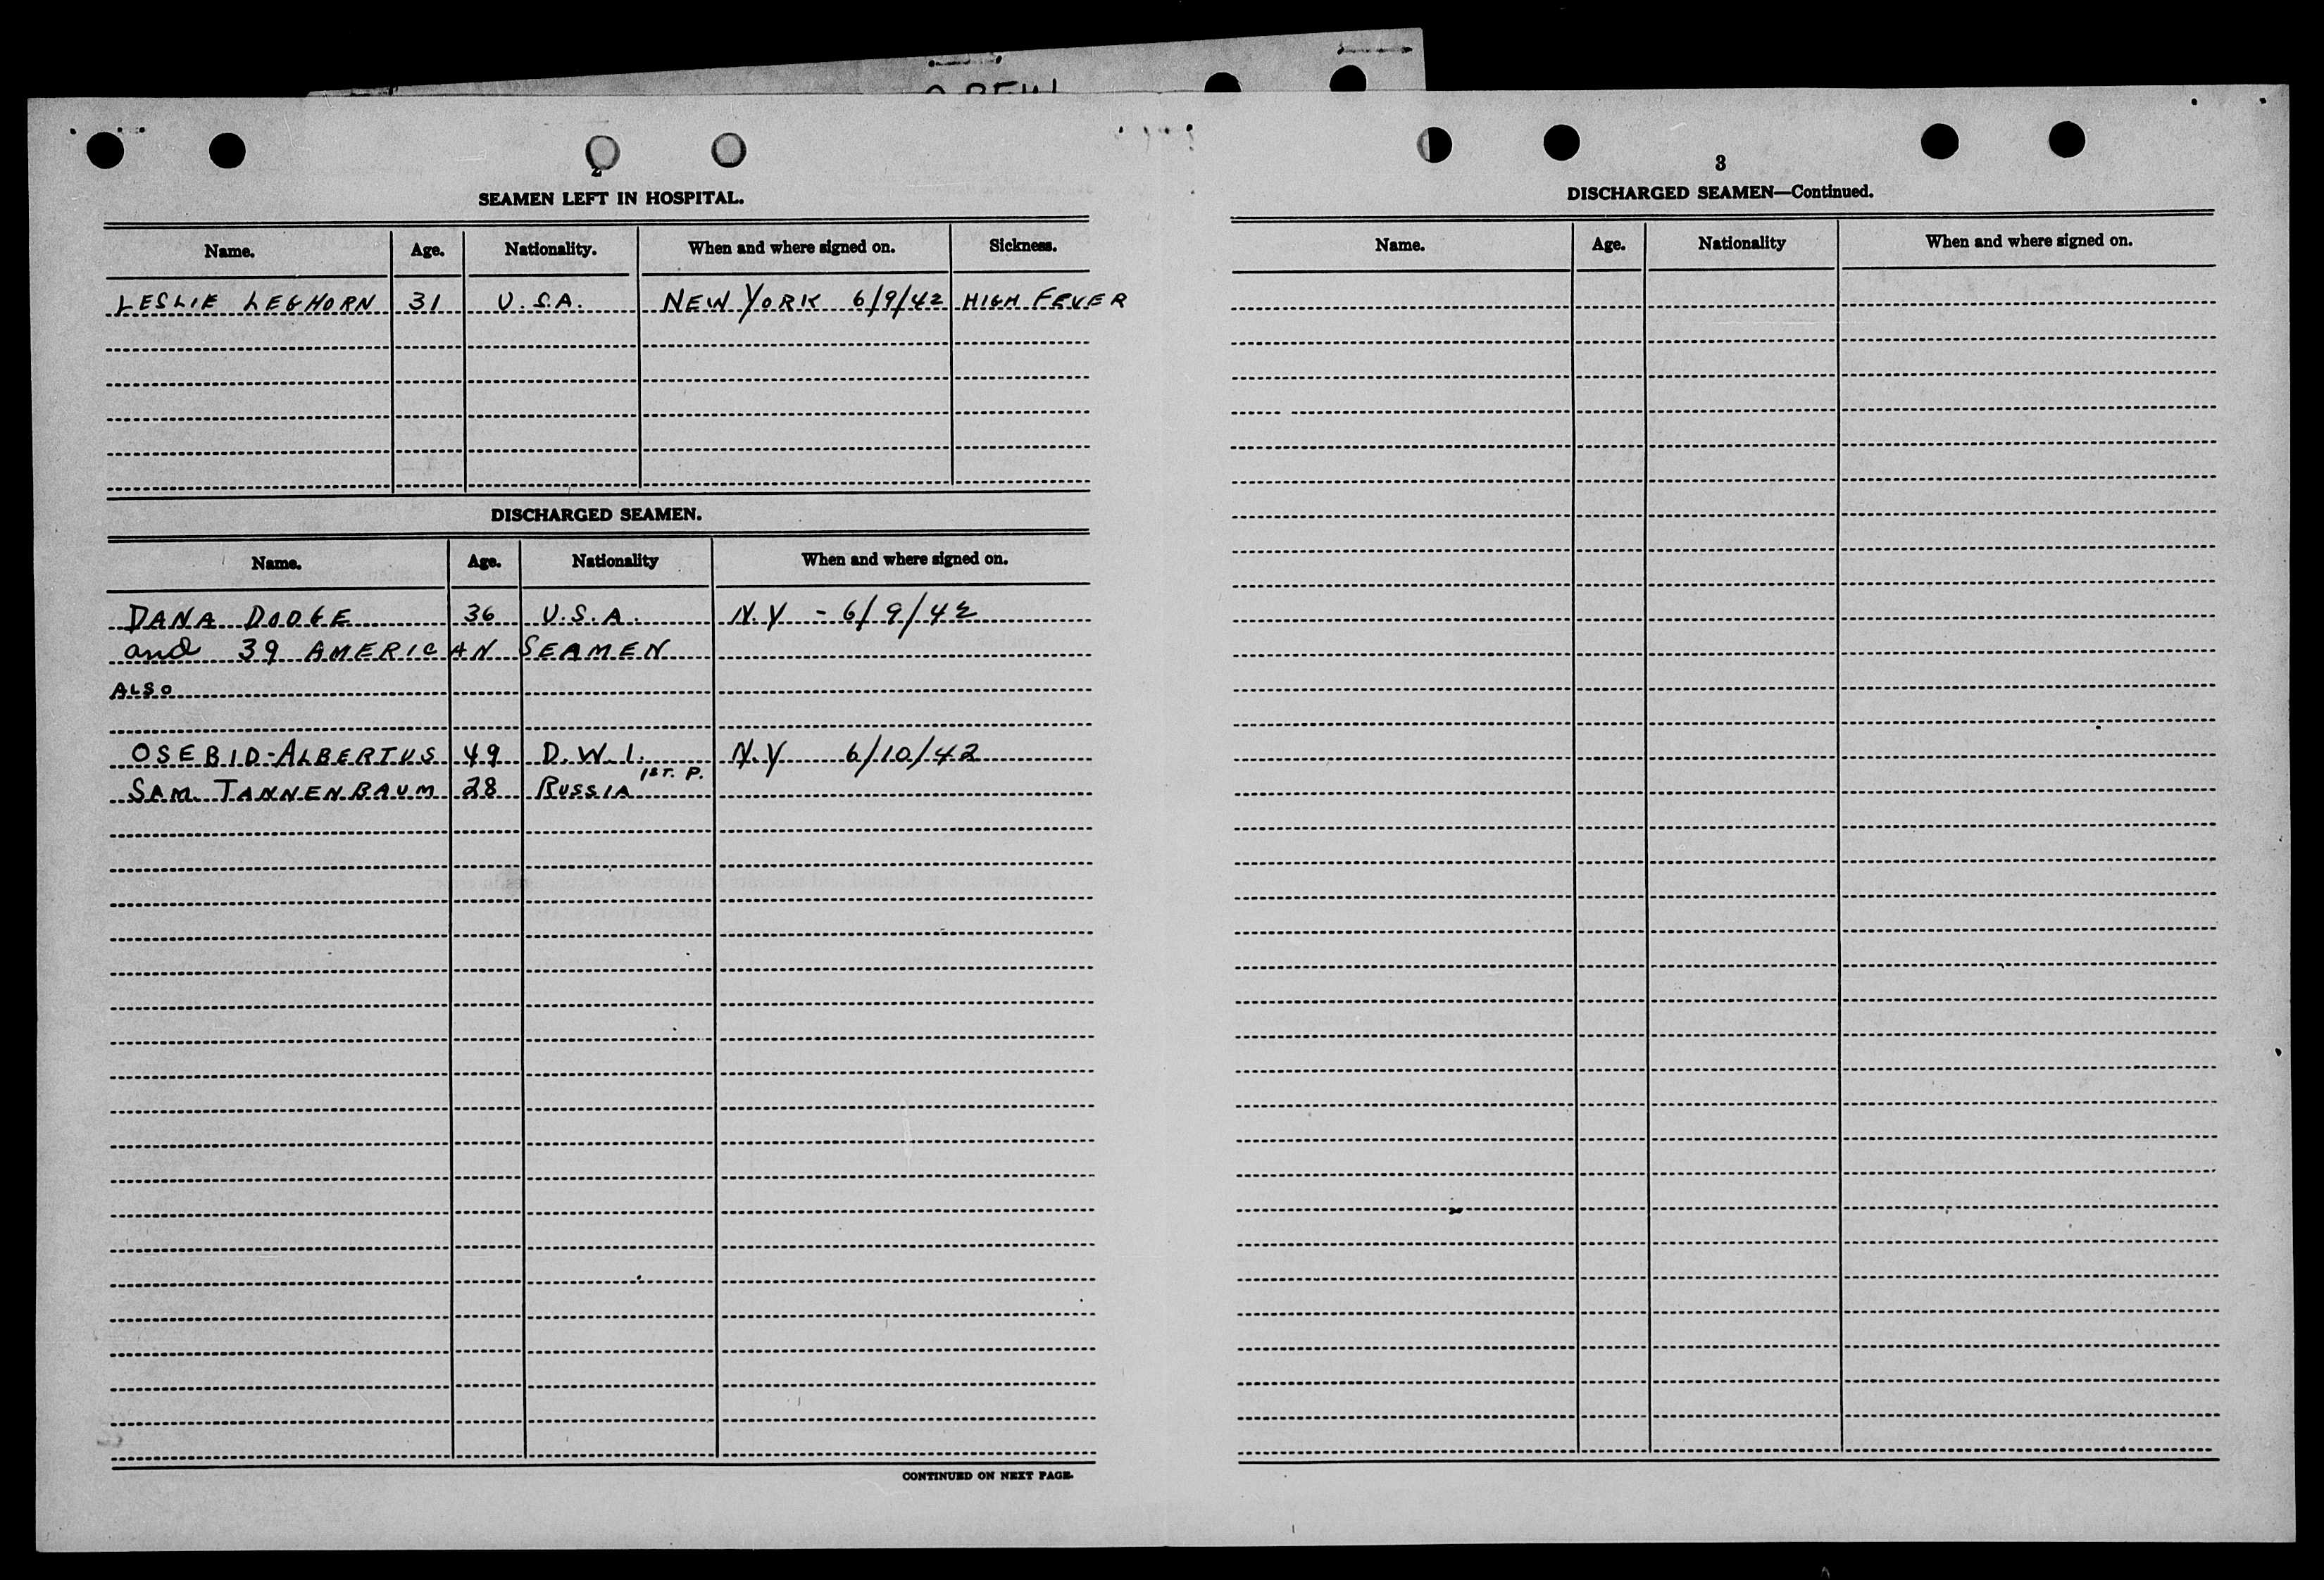 2
SEAMEN LEFT IN HOSPITAL.
Name. Age. Nationality. When and where signed on. Sickness.
LESLIE LEGHORN 31 U.S.A. NEW YORK 6/9/42 HIGH FEVER
DISCHARGED SEAMEN.
Name. Age. Nationality When and where signed on.
DANA DODGE 36 U.S.A. N.Y - 6/9/42
and 39 AMERICAN SEAMEN
ALSO
OSEBIO-ALBERTUS 49 D.W.I. N.Y 6/10/42
SAM. TANNENBAUM 28 RUSSIA 1ST. P.
CONTINUED ON NEXT PAGE.
3
DISCHARGED SEAMEN—Continued.
Name. Age. Nationality When and where signed on.